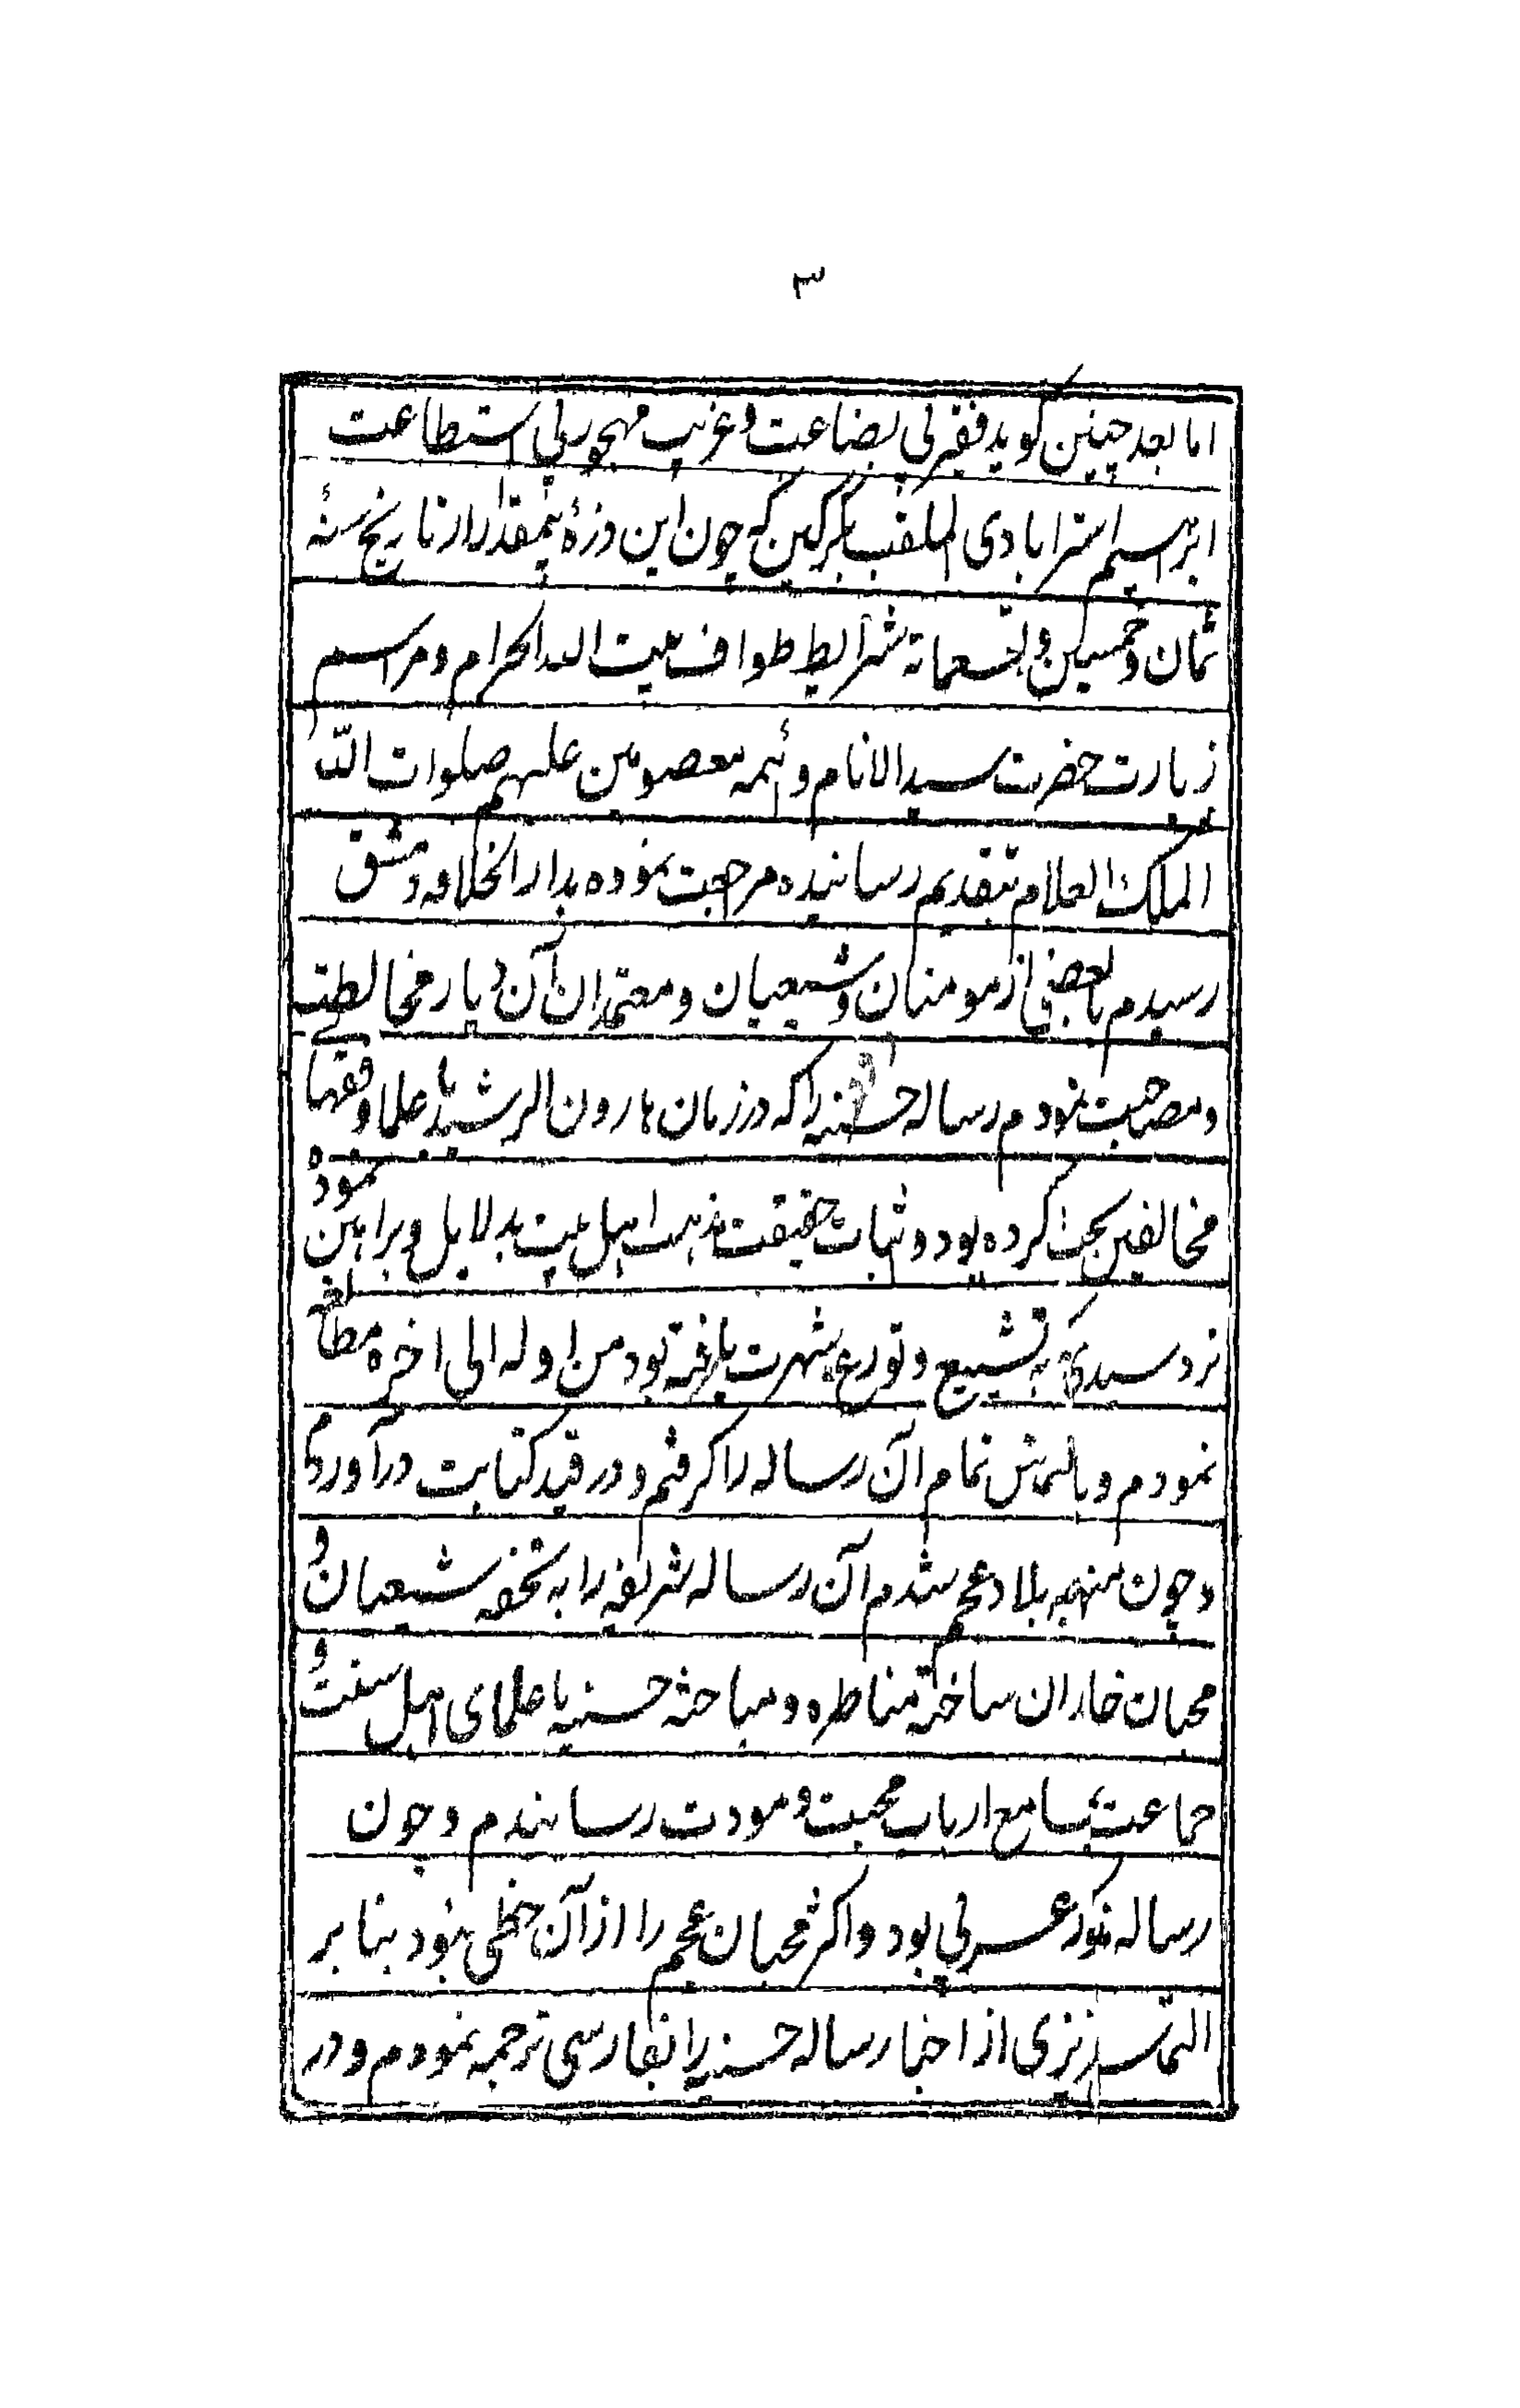 ۳
اما بعد چنین گوید فقیر بی بضاعت و غریب مهجور بی استطاعت
ابراهیم استرابادی الملقب بگرگین که چون این ذرۀ بیمقدار از تاریخ سنۀ
ثمان و خمسین و تسعمایة شرایط طواف بیت الله الحرام و مراسم
زیارت حضرت سید الانام و ائمه معصومین علیهم صلوات الله
الملک العلام بتقدیم رسانیده مراجعت نموده بدار الخلافه دمشق
رسیدم با بعضی از مومنان و شیعیان و معتمدان آن دیار مخالطت
و مصاحبت نمودم رساله حسنیه را که در زمان هارون الرشید با علما و فقهای
مخالفین بحث کرده بود و اثبات حقیقت مذهب اهل بیت بدلایل و براهین نموده
نزد سیدی که به تشیع و تورع شهرت یافته بود من اوله الی اخره مطالعه
نمودم و بالتماس تمام آن رساله را گرفتم و در قید کتابت درآوردم
و چون متوجه بلاد عجم شدم آن رساله شریفه را به تحفه شیعیان و
محبان خاندان ساخته مناظره و مباحثه حسنیه با علمای اهل سنت و
جماعت بمسامع ارباب محبت و مودت رسانیدم و چون
رساله مذکور عربی بود و اکثر محبان عجم را از آن حظی نبود بنا بر
التماس عزیزی از اخیار رساله حسنیه را بفارسی ترجمه نمودم و در